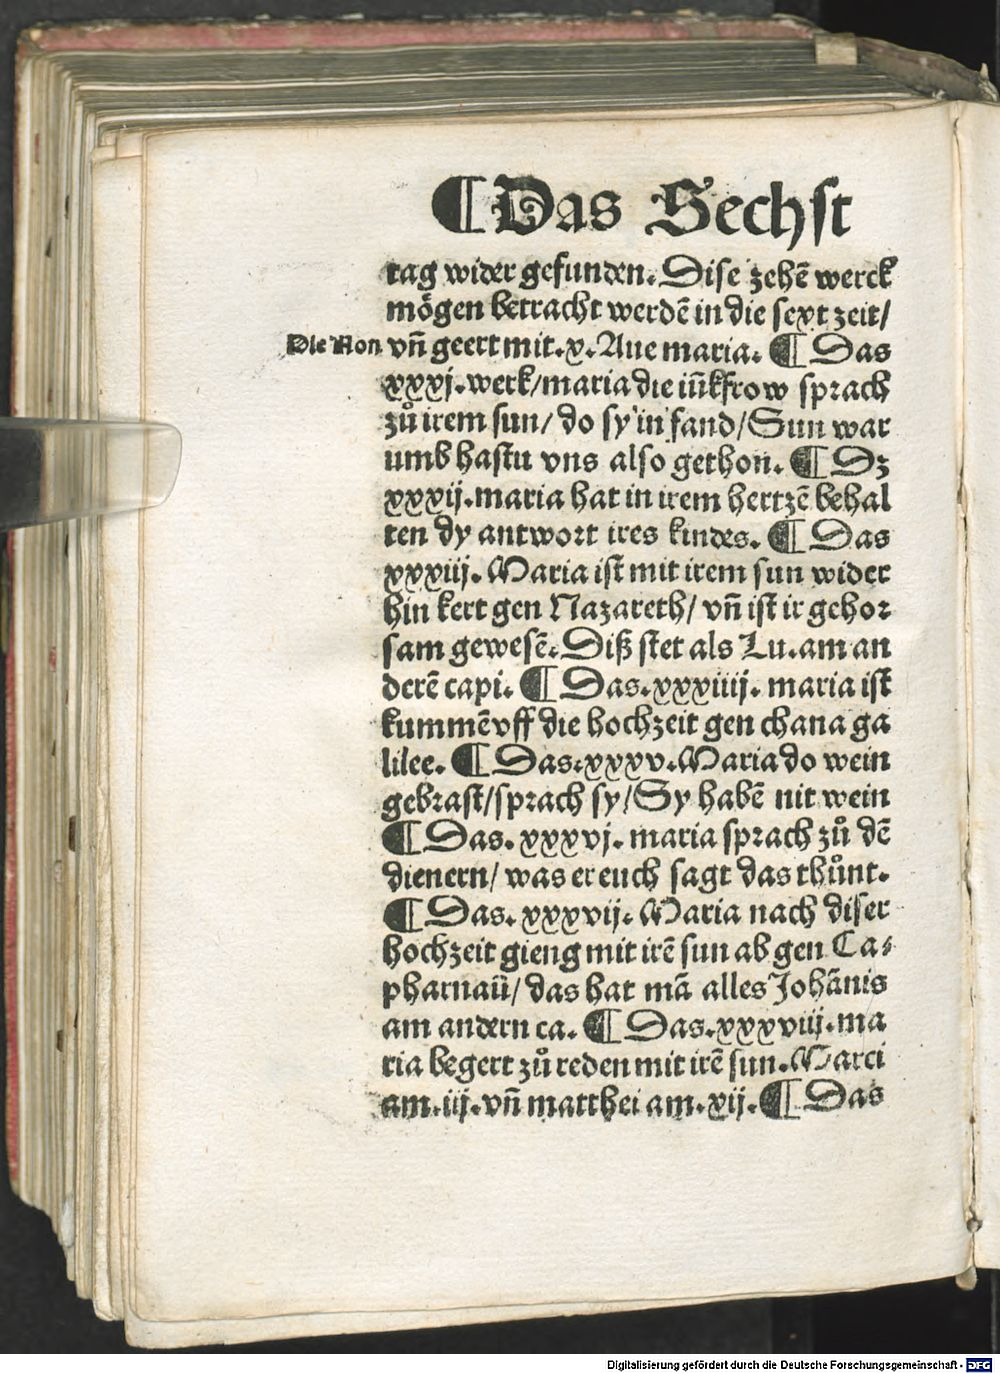 ¶Das Sechst
tag wider gefunden. Dise zehē werck
mögen betracht werdē in die sext zeit/
Die Non
vñ geert mit. x. Aue maria. ¶ Das
xxxj. werk/maria die iūkfrow sprach
zů irem sun/ do sy in fand/Sun war
umb hastu vns also gethon. ¶ Dz
xxxij. maria hat in irem hertzē behal
ten dy antwort ires kindes. ¶ Das
xxxiij. Maria ist mit irem sun wider
hin kert gen Nazareth/ vñ ist ir gehor
sam gewesē. Diß stet als Lu. am an
derē capi. ¶ Das. xxxiiij. maria ist
kummē vff die hochzeit gen chana ga
lilee. ¶ Das. xxxv. Maria do wein
gebrast/sprach sy/Sy habē nit wein
¶ Das. xxxvj. maria sprach zů dē
dienern/ was er euch sagt das thůnt.
¶ Das. xxxvij. Maria nach diser
hochzeit gieng mit irē sun ab gen Ca⸗
pharnaū/ das hat mā alles Johānis
am andern ca. ¶ Das. xxxviij. ma
ria begert zů reden mit irē sun. Marci
am. iij. vñ matthei am. xij. ¶ Das
Digitalisierung gefördert durch die Deutsche Forschungsgemeinschaft - DFG